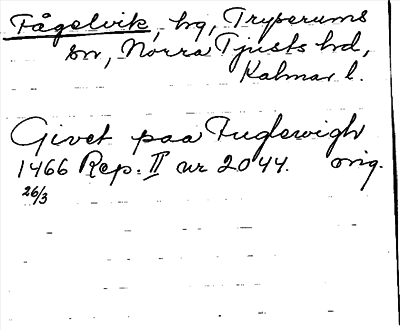 Fågelvik, hg, Tryserums
sn, Norra Tjusts hd,
Kalmar l.
Givet paa Fuglewigh
1466 Rep. II nr 2044. orig.
26/3